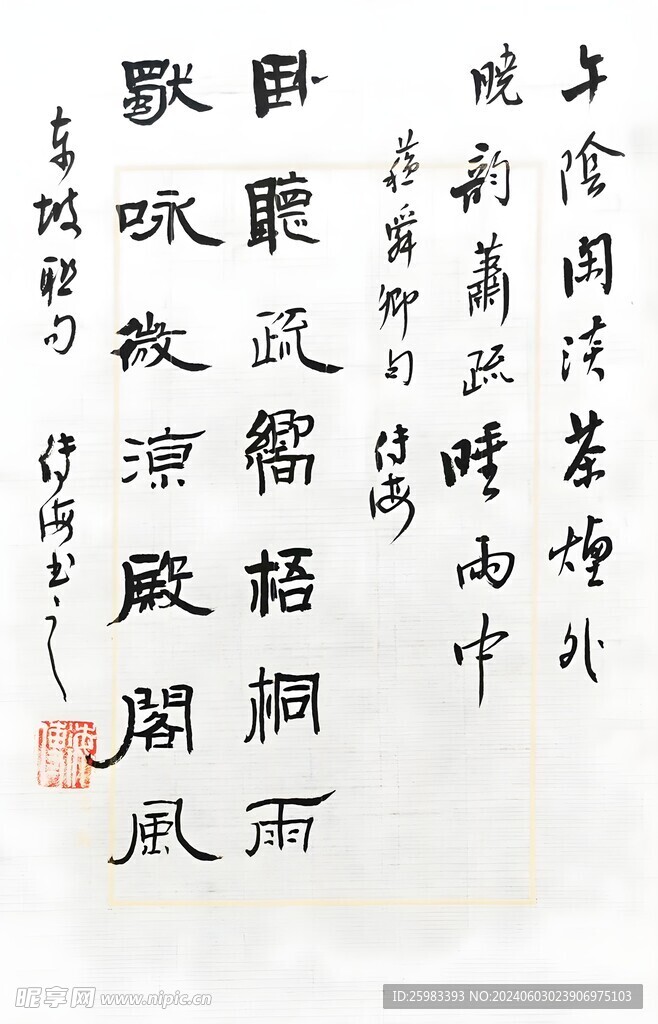 午陰閑淡茶煙外
晓韵蕭疏睡雨中
蘇舜卿句
卧聽疏響梧桐雨
獨咏微涼殿閣風
东坡联句
海书之
昵享网 www.nipic.cn
ID:25983393 NO:20240603023906975103